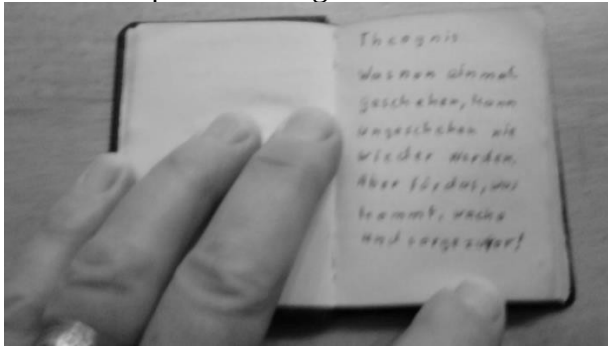 Theognis
Was nun einmal
geschehen, kann
ungeschehen nie
wieder werden.
Aber für das, was
kommt, wache
und sorge zuvor!